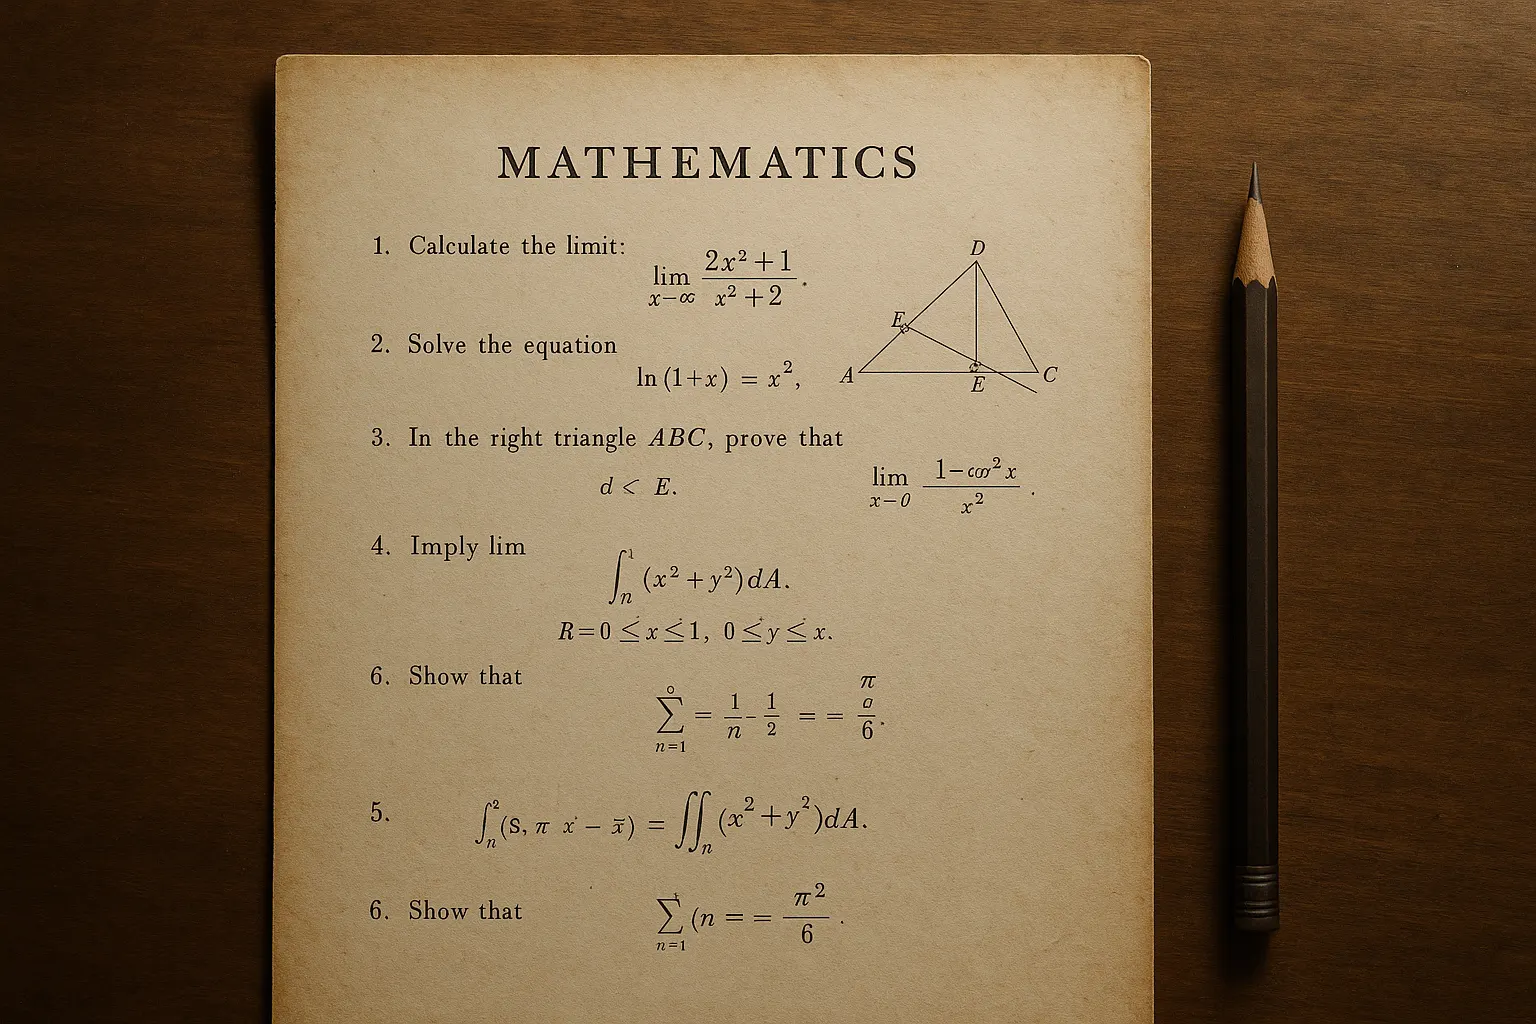 MATHEMATICS
1. Calculate the limit:
lim x−∞ (2x² + 1)/(x² + 2).
D
E
A
E
C
2. Solve the equation
ln (1+x) = x²,
3. In the right triangle ABC, prove that
d < E.
lim x−0 (1−cos² x)/x² .
4. Imply lim
∫ₙ¹ (x² + y²) dA.
R=0 ≤ x ≤ 1, 0 ≤ y ≤ x.
6. Show that
∑ n=1 = 1/n − 1/2 = = π/6.
5.
∫ₙ² (S, π x − x̄) = ∬ₙ (x² + y²) dA.
6. Show that
∑ n=1 (n = = π²/6 .